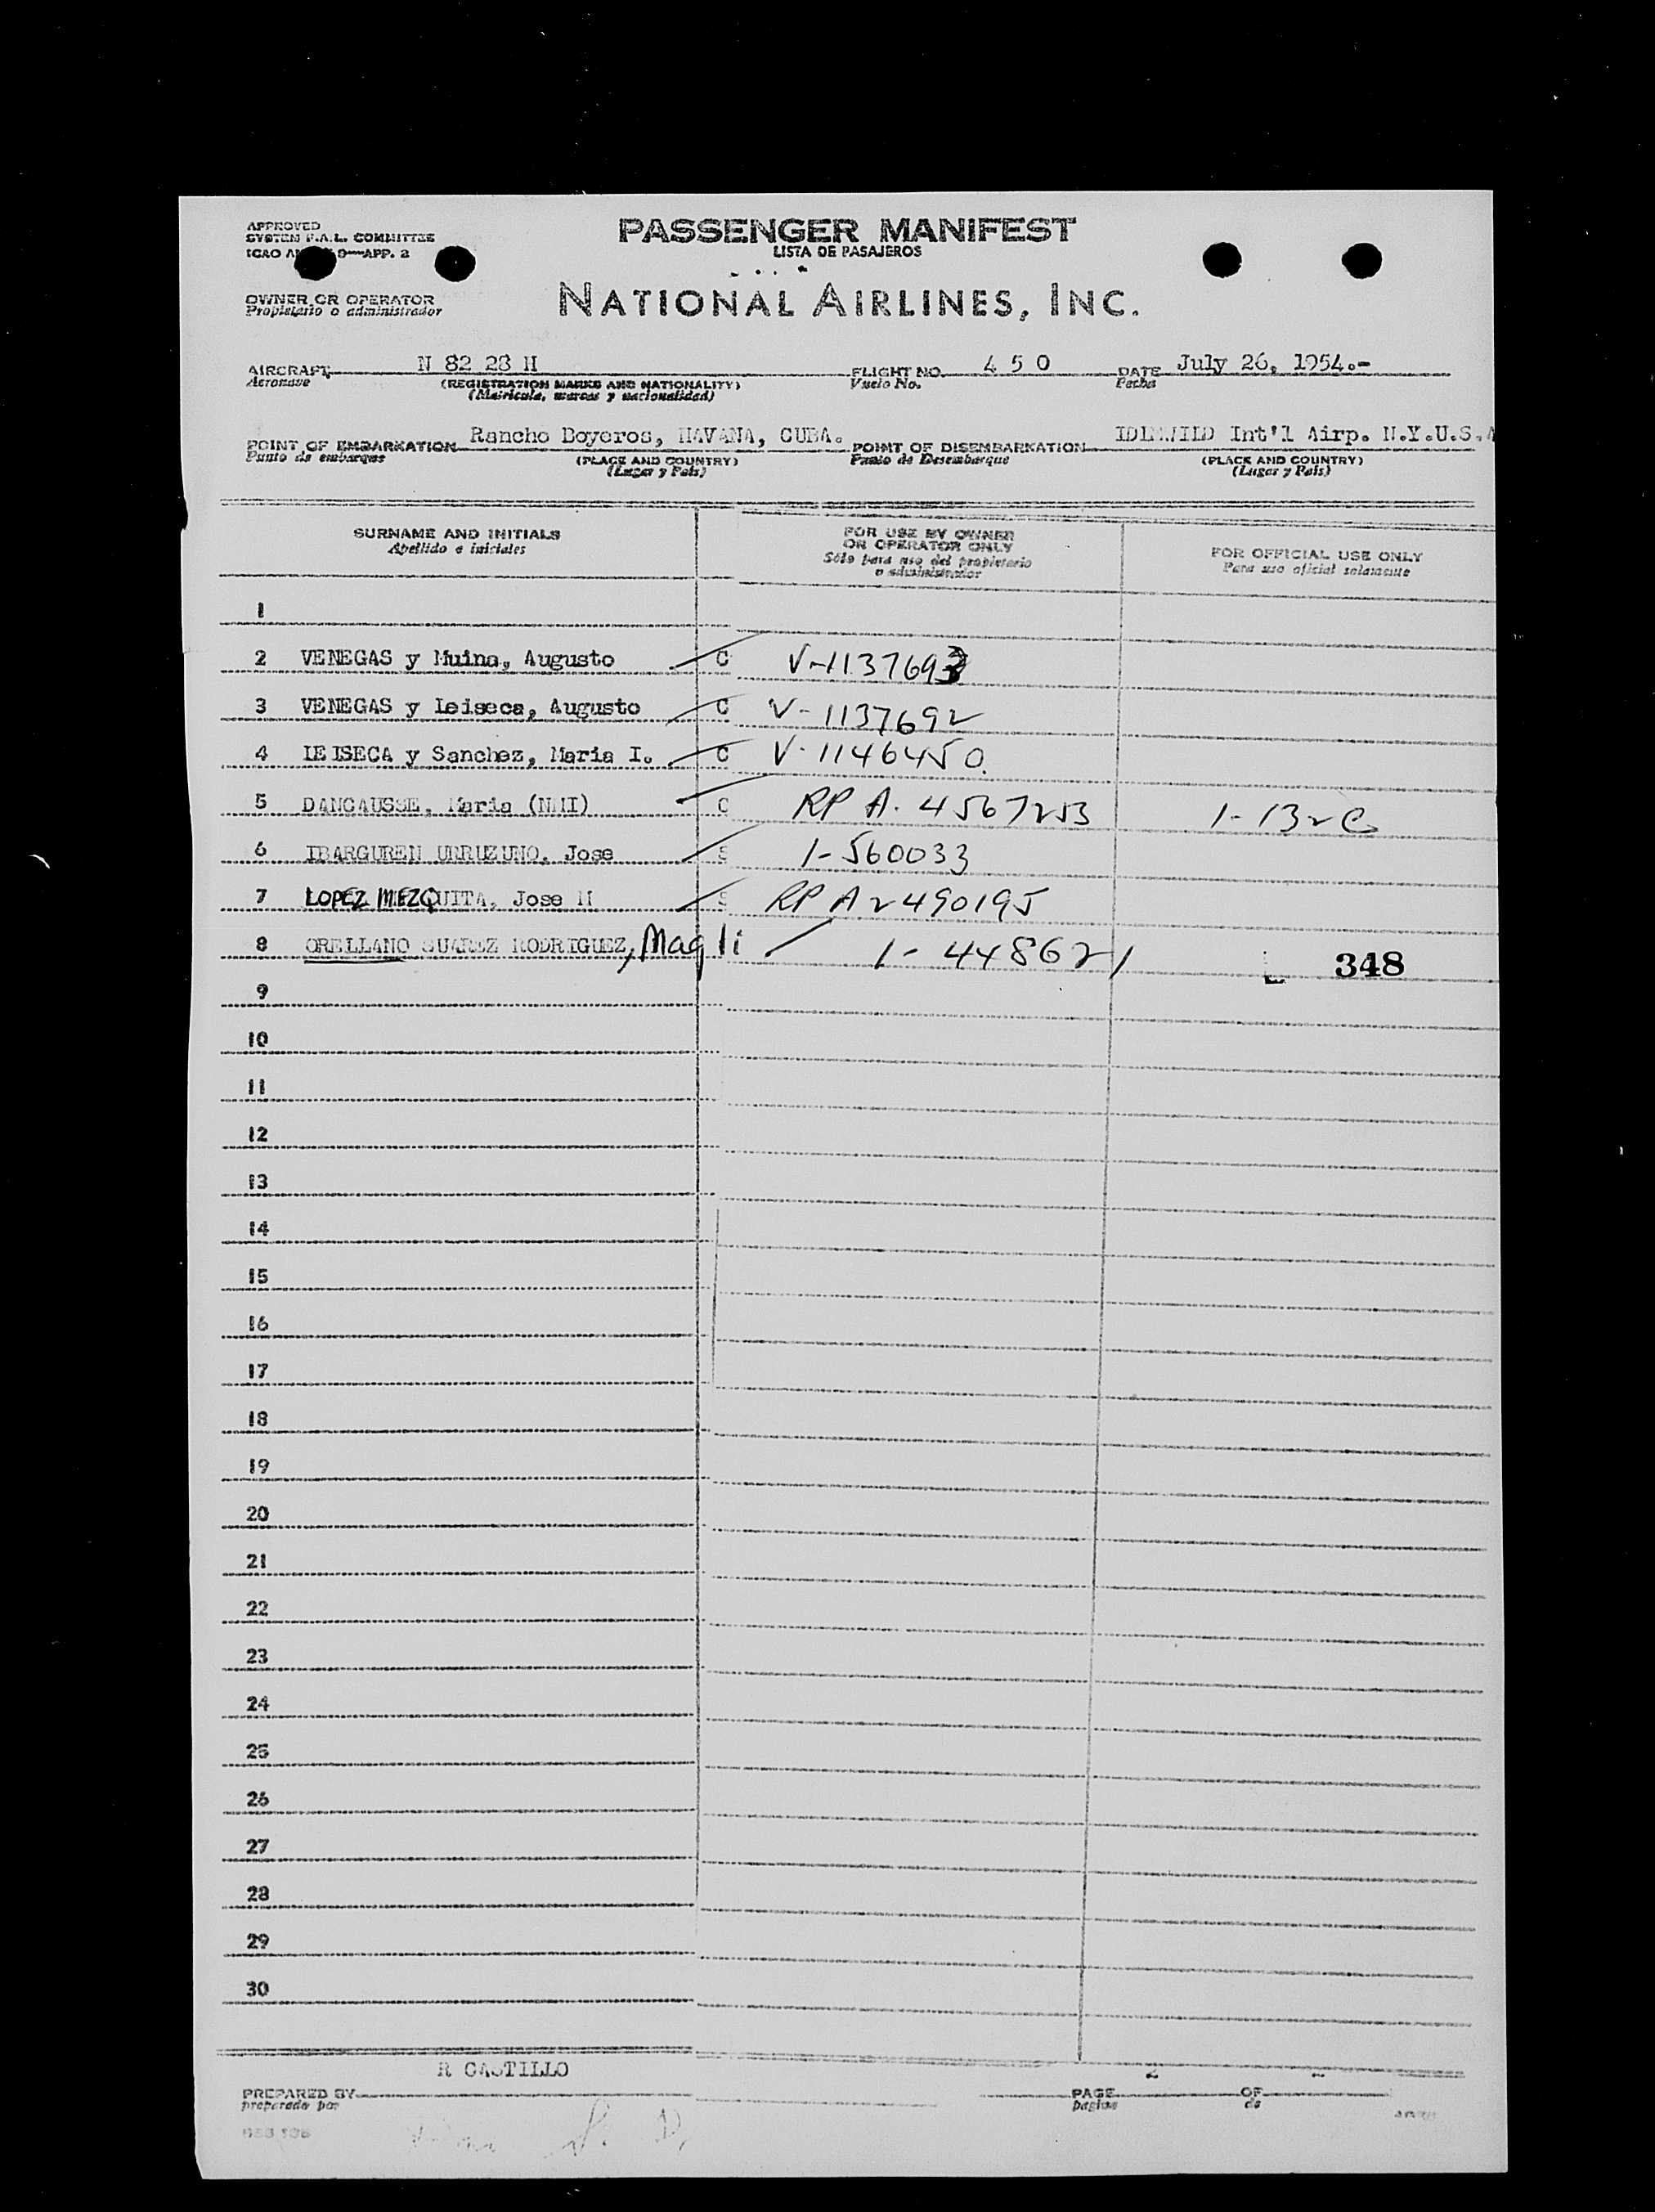 APPROVED
SYSTEM F.A.L. COMMITTEE
ICAO 9—APP. 2
PASSENGER MANIFEST
LISTA DE PASAJEROS
OWNER OR OPERATOR
Propietario o administrador
NATIONAL AIRLINES, INC.
AIRCRAFT N 82 28 H FLIGHT NO. 4 5 0 DATE July 26, 1954.-
Aeronave (REGISTRATION MARKS AND NATIONALITY) Vuelo No. Fecha
(Matricula, marcas y nacionalidad)
POINT OF EMBARKATION Rancho Boyeros, HAVANA, CUBA. POINT OF DISEMBARKATION IDLEWILD Int'l Airp. N.Y.U.S.A
Punto de embarque (PLACE AND COUNTRY) Punto de Desembarque (PLACE AND COUNTRY)
(Lugar y País) (Lugar y País)
SURNAME AND INITIALS
Apellido e iniciales
FOR USE BY OWNER
OR OPERATOR ONLY
Sólo para uso del propietario
o administrador
FOR OFFICIAL USE ONLY
Para uso oficial solamente
1
2 VENEGAS y Muina, Augusto C V-1137693
3 VENEGAS y Leiseca, Augusto C V-1137692
4 LEISECA y Sanchez, Maria I. C V-1146450
5 DANCAUSSE, Maria (NMI) C RP A-4567253 1-132C
6 IBARGUREN URRUZUNO, Jose S 1-560033
7 LOPEZ MEZQUITA, Jose M S RP A2490195
8 ORELLANO SUAREZ RODRIGUEZ, Magli 1-448621 348
9
10
11
12
13
14
15
16
17
18
19
20
21
22
23
24
25
26
27
28
29
30
R CASTILLO
PREPARED BY PAGE 2 OF
preparado por pagina de